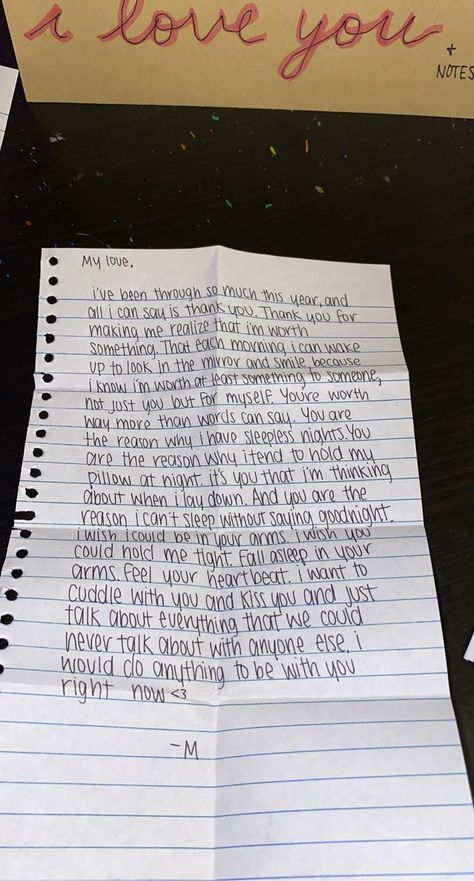 i love you
+
NOTES
My love,
i've been through so much this year, and
all i can say is thank you. Thank you for
making me realize that i'm worth
something. That each morning, i can wake
up to look in the mirror and smile because
i know i'm worth at least something to someone,
not just you but for myself. You're worth
way more than words can say. You are
the reason why i have sleepless nights. You
are the reason why i tend to hold my
pillow at night. it's you that i'm thinking
about when i lay down. And you are the
reason i can't sleep without saying goodnight.
i wish i could be in your arms. i wish you
could hold me tight. Fall asleep in your
arms. Feel your heart beat. i want to
cuddle with you and kiss you and just
talk about everything that we could
never talk about with anyone else. i
would do anything to be with you
right now <3
-M